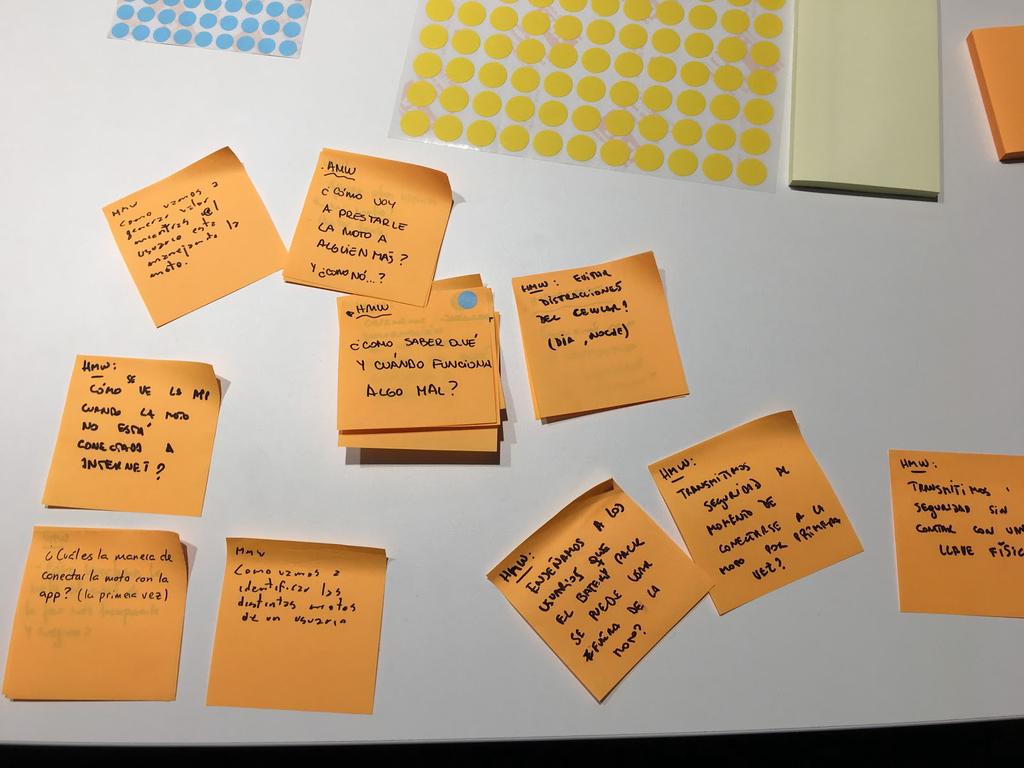 HMW
Como vamos a
generar valor
mientras el
usuario esta
manejando
moto.
HMW
¿CÓMO VOY
A PRESTARLE
LA MOTO A
ALGUIEN MAS?
Y ¿COMO NÓ...?
HMW
¿COMO SABER QUÉ
Y CUÁNDO FUNCIONA
ALGO MAL?
HMW: EVITAR
DISTRACCIONES
DEL CELULAR?
(DIA, NOCHE)
HMW:
SE
CÓMO VE LA
CUANDO LA MOTO
NO ESTÁ
CONECTADA A
INTERNET?
HMW:
ENSEÑAMOS A LOS
USUARIOS QUE
EL BATERY PACK
SE PUEDE USAR
FUERA DE LA
MOTO?
HMW:
TRANSMITIMOS
SEGURIDAD AL
MOMENTO DE
CONECTARSE A LA
MOTO POR PRIMERA
VEZ?
HMW:
TRANSMITIMOS
SEGURIDAD SIN
CONTAR CON UNA
LLAVE FÍSIC
¿Cuál es la manera de
conectar la moto con la
app? (la primera vez)
HMW
Como vamos a
identificar las
distintas motos
de un usuario